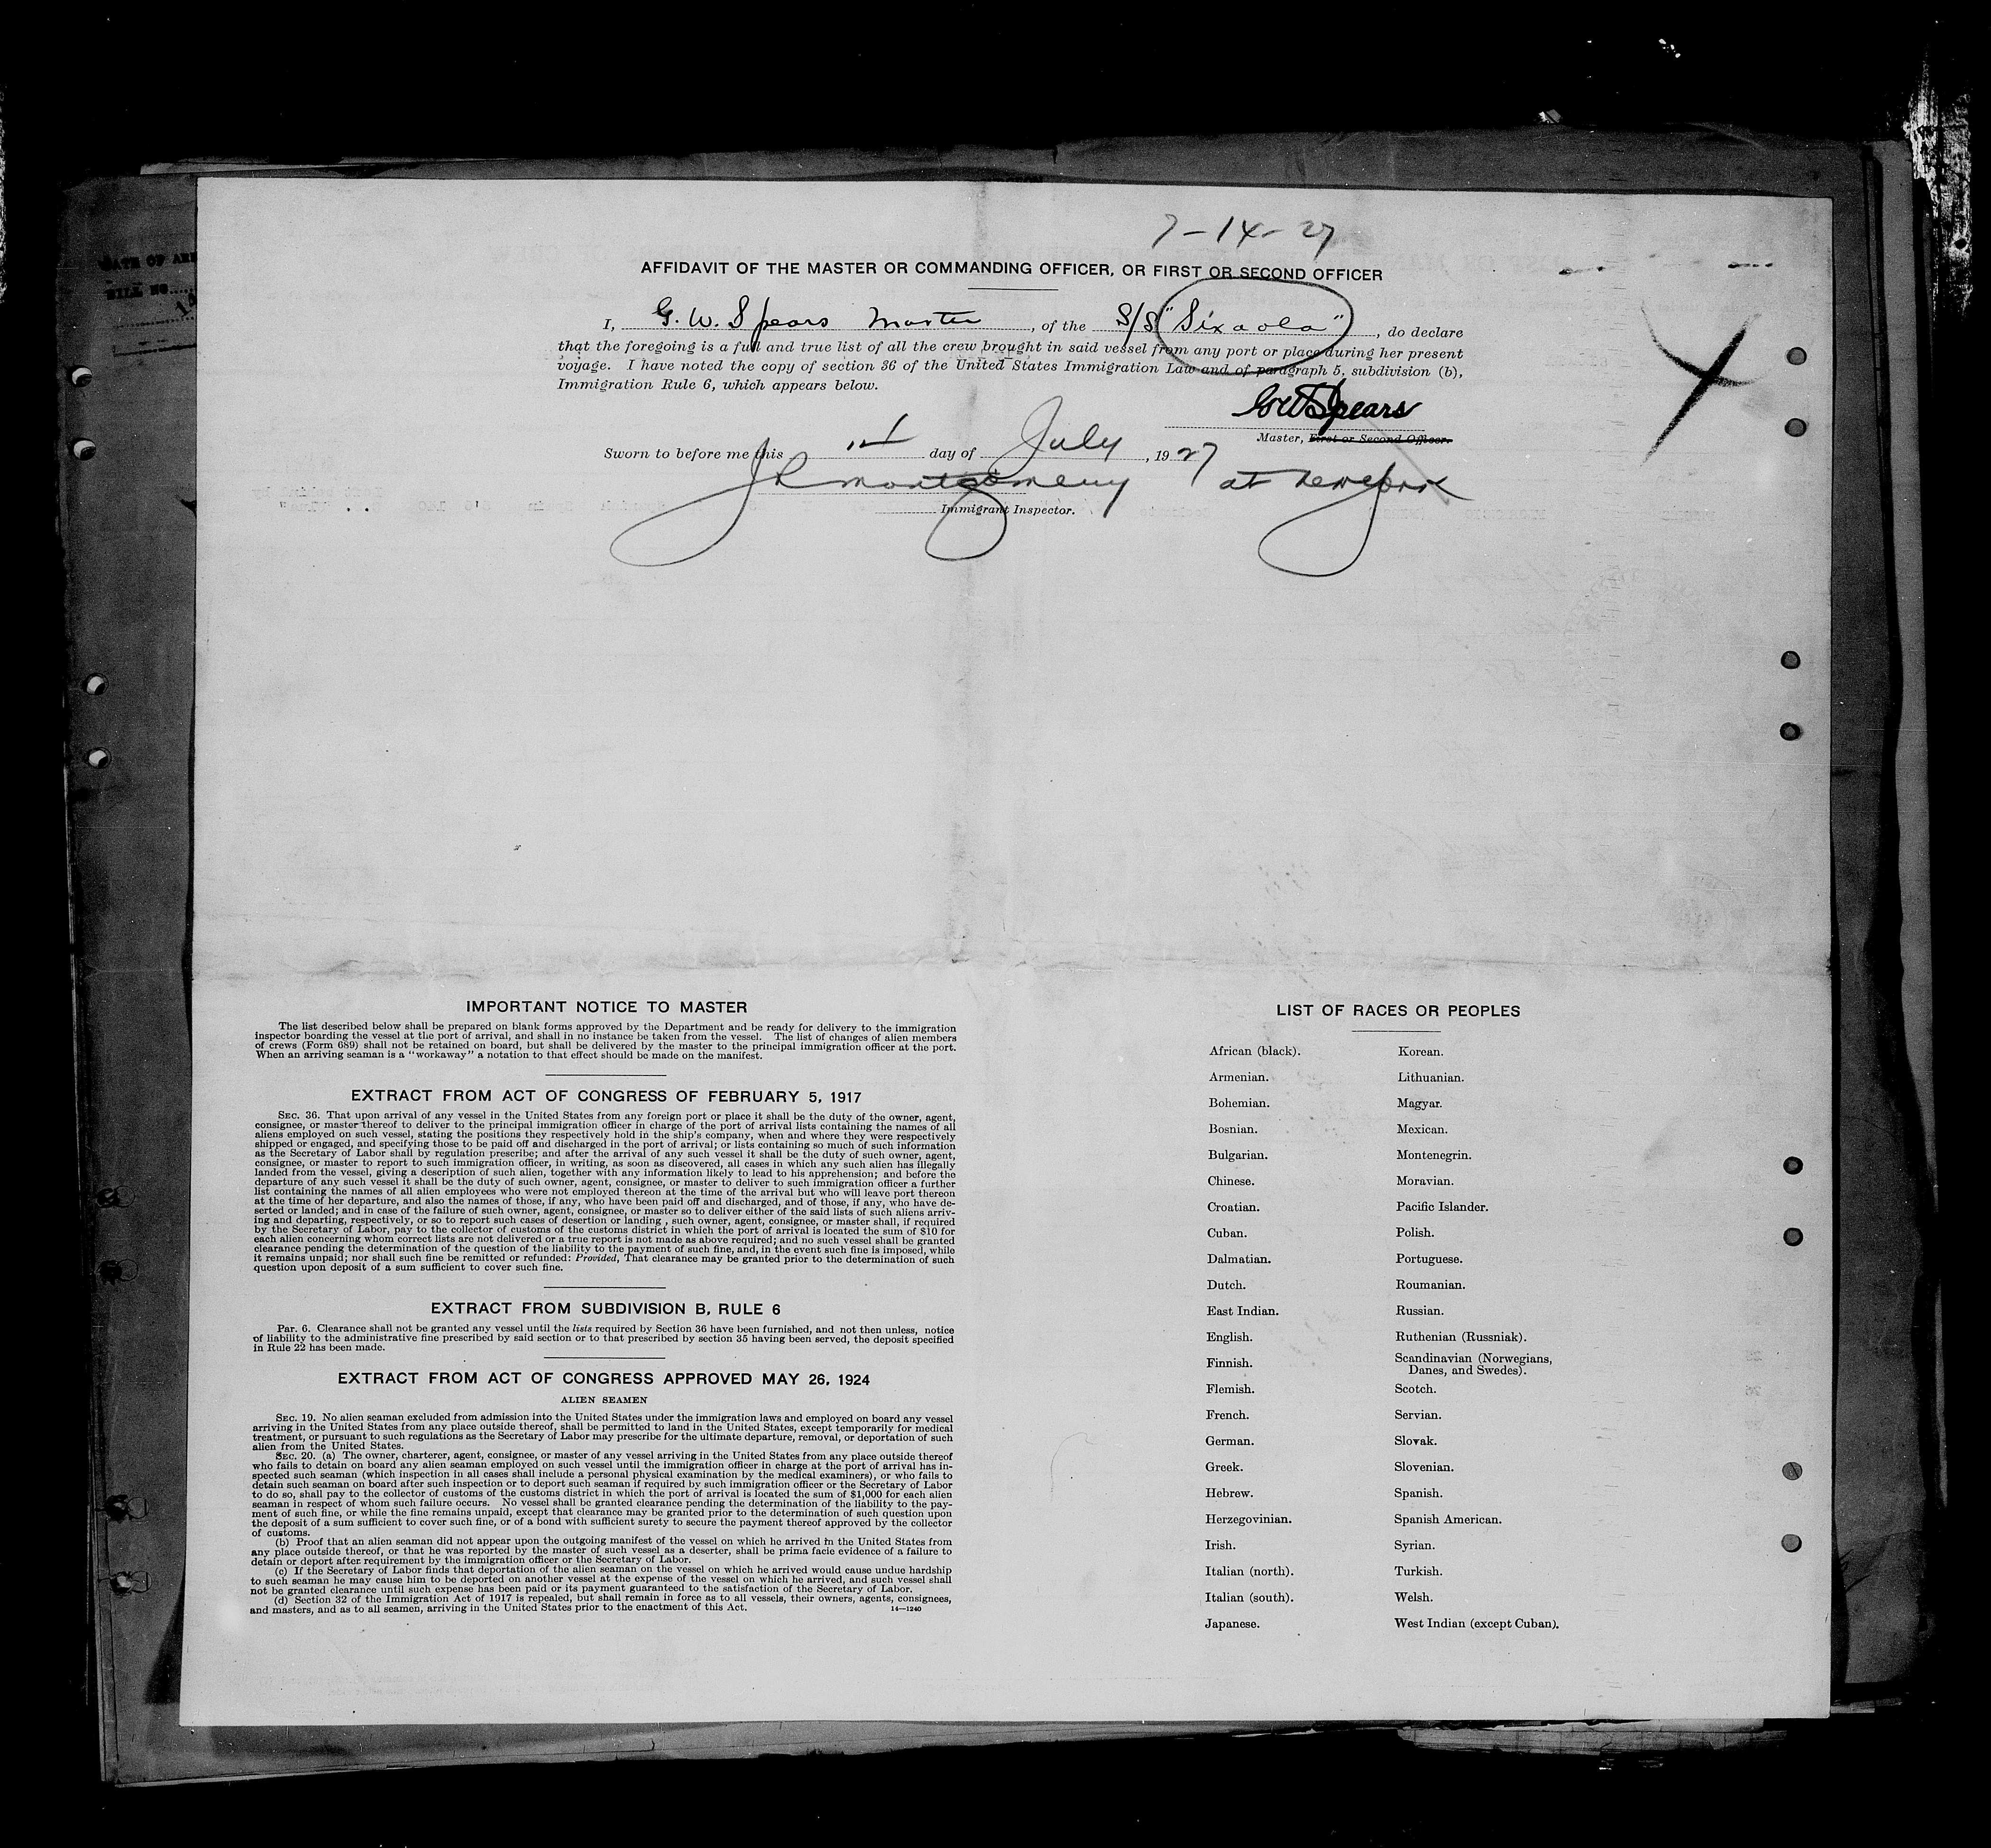 DATE OF ARR
BILL NO.
7-14-27
AFFIDAVIT OF THE MASTER OR COMMANDING OFFICER, OR FIRST OR SECOND OFFICER
I, G. W. Spears Master, of the S/S "Sixaola", do declare
that the foregoing is a full and true list of all the crew brought in said vessel from any port or place during her present
voyage. I have noted the copy of section 36 of the United States Immigration Law and of paragraph 5, subdivision (b),
Immigration Rule 6, which appears below.
GW Spears
Master, First or Second Officer.
Sworn to before me this 14 day of July, 1927
J R Montgomery at New York
Immigrant Inspector.
IMPORTANT NOTICE TO MASTER
The list described below shall be prepared on blank forms approved by the Department and be ready for delivery to the immigration
inspector boarding the vessel at the port of arrival, and shall in no instance be taken from the vessel. The list of changes of alien members
of crews (Form 689) shall not be retained on board, but shall be delivered by the master to the principal immigration officer at the port.
When an arriving seaman is a "workaway" a notation to that effect should be made on the manifest.
EXTRACT FROM ACT OF CONGRESS OF FEBRUARY 5, 1917
SEC. 36. That upon arrival of any vessel in the United States from any foreign port or place it shall be the duty of the owner, agent,
consignee, or master thereof to deliver to the principal immigration officer in charge of the port of arrival lists containing the names of all
aliens employed on such vessel, stating the positions they respectively hold in the ship's company, when and where they were respectively
shipped or engaged, and specifying those to be paid off and discharged in the port of arrival; or lists containing so much of such information
as the Secretary of Labor shall by regulation prescribe; and after the arrival of any such vessel it shall be the duty of such owner, agent,
consignee, or master to report to such immigration officer, in writing, as soon as discovered, all cases in which any such alien has illegally
landed from the vessel, giving a description of such alien, together with any information likely to lead to his apprehension; and before the
departure of any such vessel it shall be the duty of such owner, agent, consignee, or master to deliver to such immigration officer a further
list containing the names of all alien employees who were not employed thereon at the time of the arrival but who will leave port thereon
at the time of her departure, and also the names of those, if any, who have been paid off and discharged, and of those, if any, who have de-
serted or landed; and in case of the failure of such owner, agent, consignee, or master so to deliver either of the said lists of such aliens arriv-
ing and departing, respectively, or so to report such cases of desertion or landing , such owner, agent, consignee, or master shall, if required
by the Secretary of Labor, pay to the collector of customs of the customs district in which the port of arrival is located the sum of $10 for
each alien concerning whom correct lists are not delivered or a true report is not made as above required; and no such vessel shall be granted
clearance pending the determination of the question of the liability to the payment of such fine, and, in the event such fine is imposed, while
it remains unpaid; nor shall such fine be remitted or refunded: Provided, That clearance may be granted prior to the determination of such
question upon deposit of a sum sufficient to cover such fine.
EXTRACT FROM SUBDIVISION B, RULE 6
Par. 6. Clearance shall not be granted any vessel until the lists required by Section 36 have been furnished, and not then unless, notice
of liability to the administrative fine prescribed by said section or to that prescribed by section 35 having been served, the deposit specified
in Rule 22 has been made.
EXTRACT FROM ACT OF CONGRESS APPROVED MAY 26, 1924
ALIEN SEAMEN
SEC. 19. No alien seaman excluded from admission into the United States under the immigration laws and employed on board any vessel
arriving in the United States from any place outside thereof, shall be permitted to land in the United States, except temporarily for medical
treatment, or pursuant to such regulations as the Secretary of Labor may prescribe for the ultimate departure, removal, or deportation of such
alien from the United States.
SEC. 20. (a) The owner, charterer, agent, consignee, or master of any vessel arriving in the United States from any place outside thereof
who fails to detain on board any alien seaman employed on such vessel until the immigration officer in charge at the port of arrival has in-
spected such seaman (which inspection in all cases shall include a personal physical examination by the medical examiners), or who fails to
detain such seaman on board after such inspection or to deport such seaman if required by such immigration officer or the Secretary of Labor
to do so, shall pay to the collector of customs of the customs district in which the port of arrival is located the sum of $1,000 for each alien
seaman in respect of whom such failure occurs. No vessel shall be granted clearance pending the determination of the liability to the pay-
ment of such fine, or while the fine remains unpaid, except that clearance may be granted prior to the determination of such question upon
the deposit of a sum sufficient to cover such fine, or of a bond with sufficient surety to secure the payment thereof approved by the collector
of customs.
(b) Proof that an alien seaman did not appear upon the outgoing manifest of the vessel on which he arrived in the United States from
any place outside thereof, or that he was reported by the master of such vessel as a deserter, shall be prima facie evidence of a failure to
detain or deport after requirement by the immigration officer or the Secretary of Labor.
(c) If the Secretary of Labor finds that deportation of the alien seaman on the vessel on which he arrived would cause undue hardship
to such seaman he may cause him to be deported on another vessel at the expense of the vessel on which he arrived, and such vessel shall
not be granted clearance until such expense has been paid or its payment guaranteed to the satisfaction of the Secretary of Labor.
(d) Section 32 of the Immigration Act of 1917 is repealed, but shall remain in force as to all vessels, their owners, agents, consignees,
and masters, and as to all seamen, arriving in the United States prior to the enactment of this Act.
14—1240
LIST OF RACES OR PEOPLES
African (black).
Armenian.
Bohemian.
Bosnian.
Bulgarian.
Chinese.
Croatian.
Cuban.
Dalmatian.
Dutch.
East Indian.
English.
Finnish.
Flemish.
French.
German.
Greek.
Hebrew.
Herzegovinian.
Irish.
Italian (north).
Italian (south).
Japanese.
Korean.
Lithuanian.
Magyar.
Mexican.
Montenegrin.
Moravian.
Pacific Islander.
Polish.
Portuguese.
Roumanian.
Russian.
Ruthenian (Russniak).
Scandinavian (Norwegians,
Danes, and Swedes).
Scotch.
Servian.
Slovak.
Slovenian.
Spanish.
Spanish American.
Syrian.
Turkish.
Welsh.
West Indian (except Cuban).